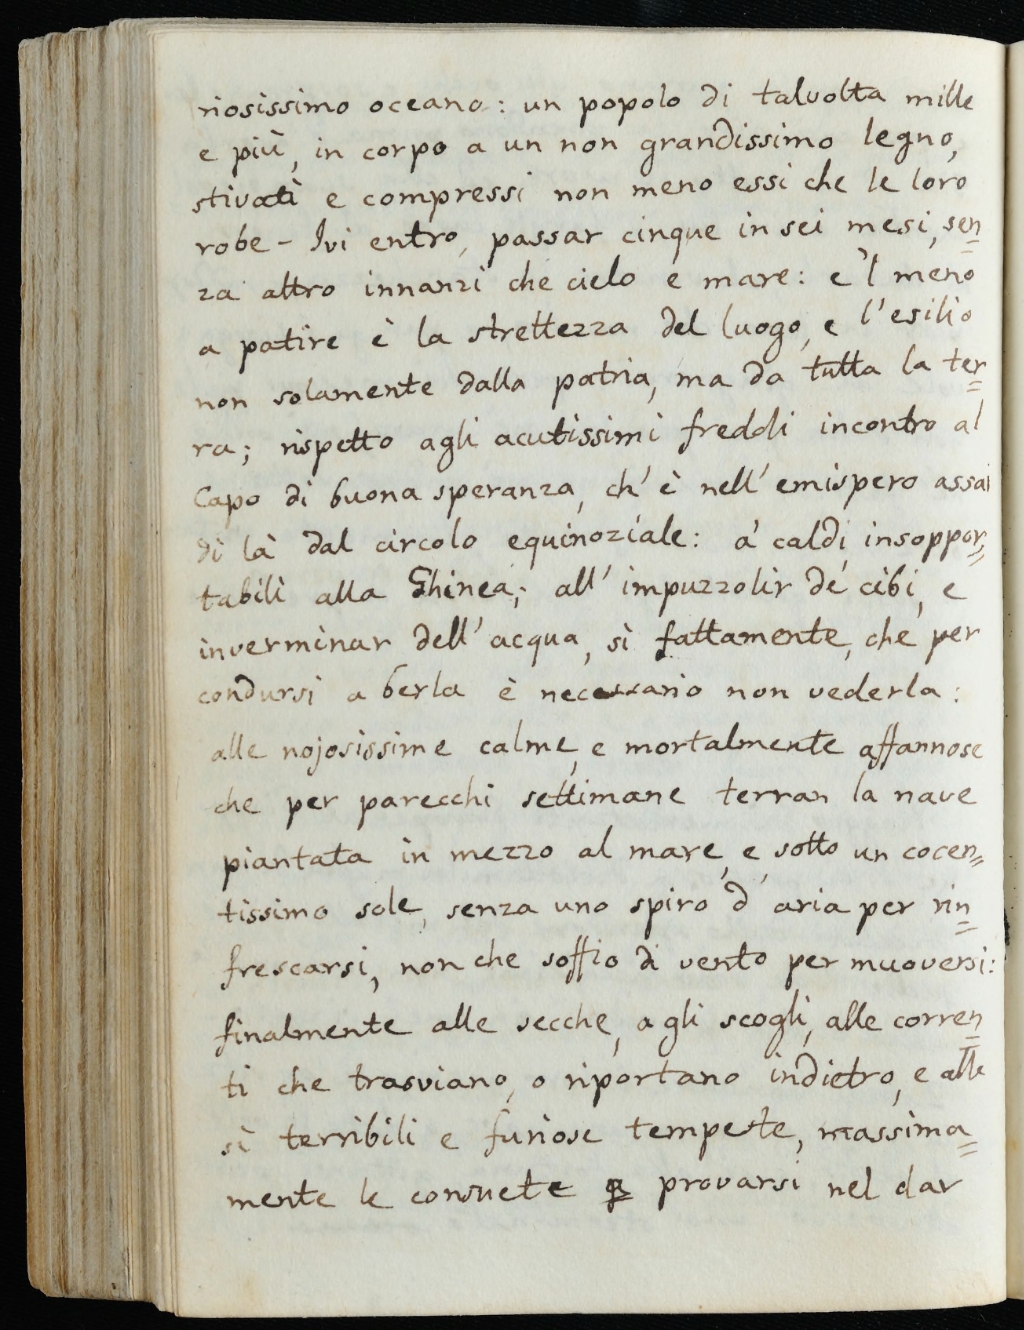 riosissimo oceano: un popolo di talvolta mille
e più, in corpo a un non grandissimo legno,
stivati e compressi non meno essi che le loro
robe - Ivi entro, passar cinque in sei mesi, sen=
za altro innanzi che cielo e mare: e 'l meno
a patire è la strettezza del luogo, e l'esilio
non solamente dalla patria, ma da tutta la ter=
ra; rispetto agli acutissimi freddi incontro al
Capo di buona speranza, ch'è nell'emispero assai
di là dal circolo equinoziale: a' caldi insoppor=
tabili alla Ghinea; all'impuzzolir de' cibi, e
inverminar dell'acqua, sì fattamente, che per
condursi a berla è necessario non vederla:
alle nojosissime calme, e mortalmente affannose
che per parecchi settimane terran la nave
piantata in mezzo al mare, e, sotto un cocen=
tissimo sole, senza uno spiro d'aria per rin=
frescarsi, non che soffio di vento per muoversi:
finalmente alle secche, agli scogli, alle corren=
ti che trasviano, o riportano indietro, e alle
sì terribili e furiose tempeste, massima=
mente le consuete provarsi nel dar